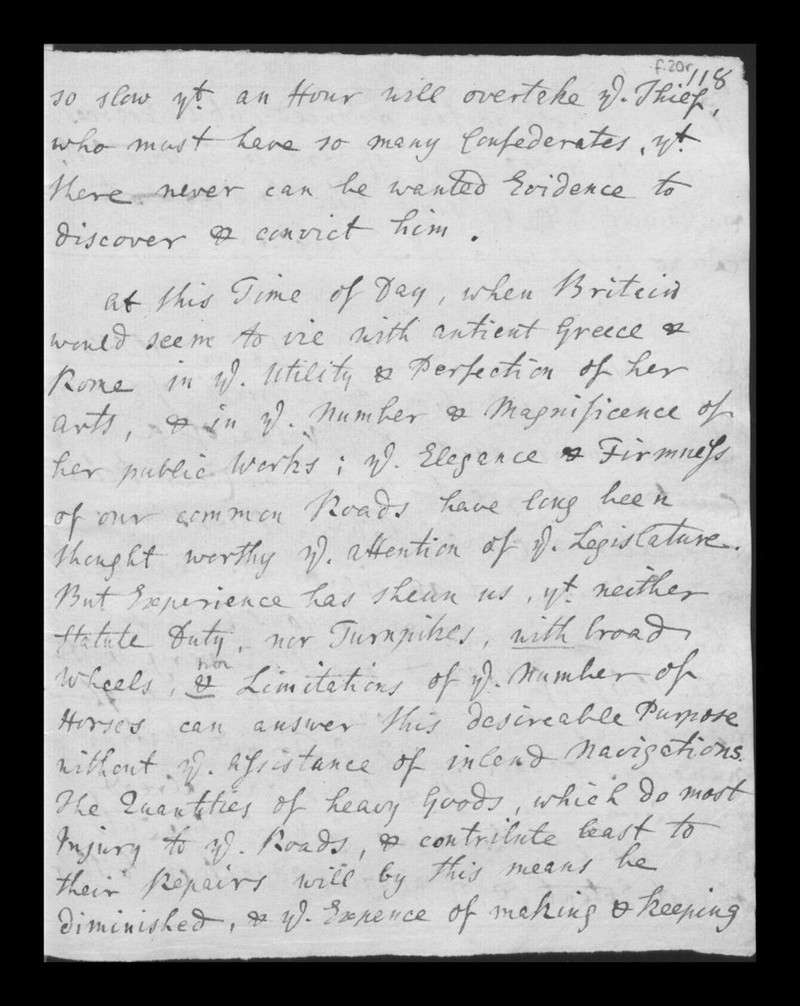 f.20r 118
so slow yt. an Hour will overtake ye. Thief,
who must have so many Confederates, yt.
there never can be wanted Evidence to
discover & convict him.
at this Time of Day, when Britain
would seem to vie with antient Greece &
Rome in ye. Utility & Perfection of her
arts, & in ye. Number & Magnificence of
her public Works; ye. Elegance & Firmness
of our common Roads have long been
thought worthy ye. attention of ye. Legislature.
But Experience has shewn us, yt. neither
Statute Duty, nor Turnpikes, with broad
nor
Wheels, & Limitations of ye. Number of
Horses can answer this desireable Purpose
without ye. assistance of inland Navigations.
The Quantities of heavy Goods, which do most
Injury to ye. Roads, & contribute least to
their Repairs will by this means be
diminished, & ye. Expence of making & keeping